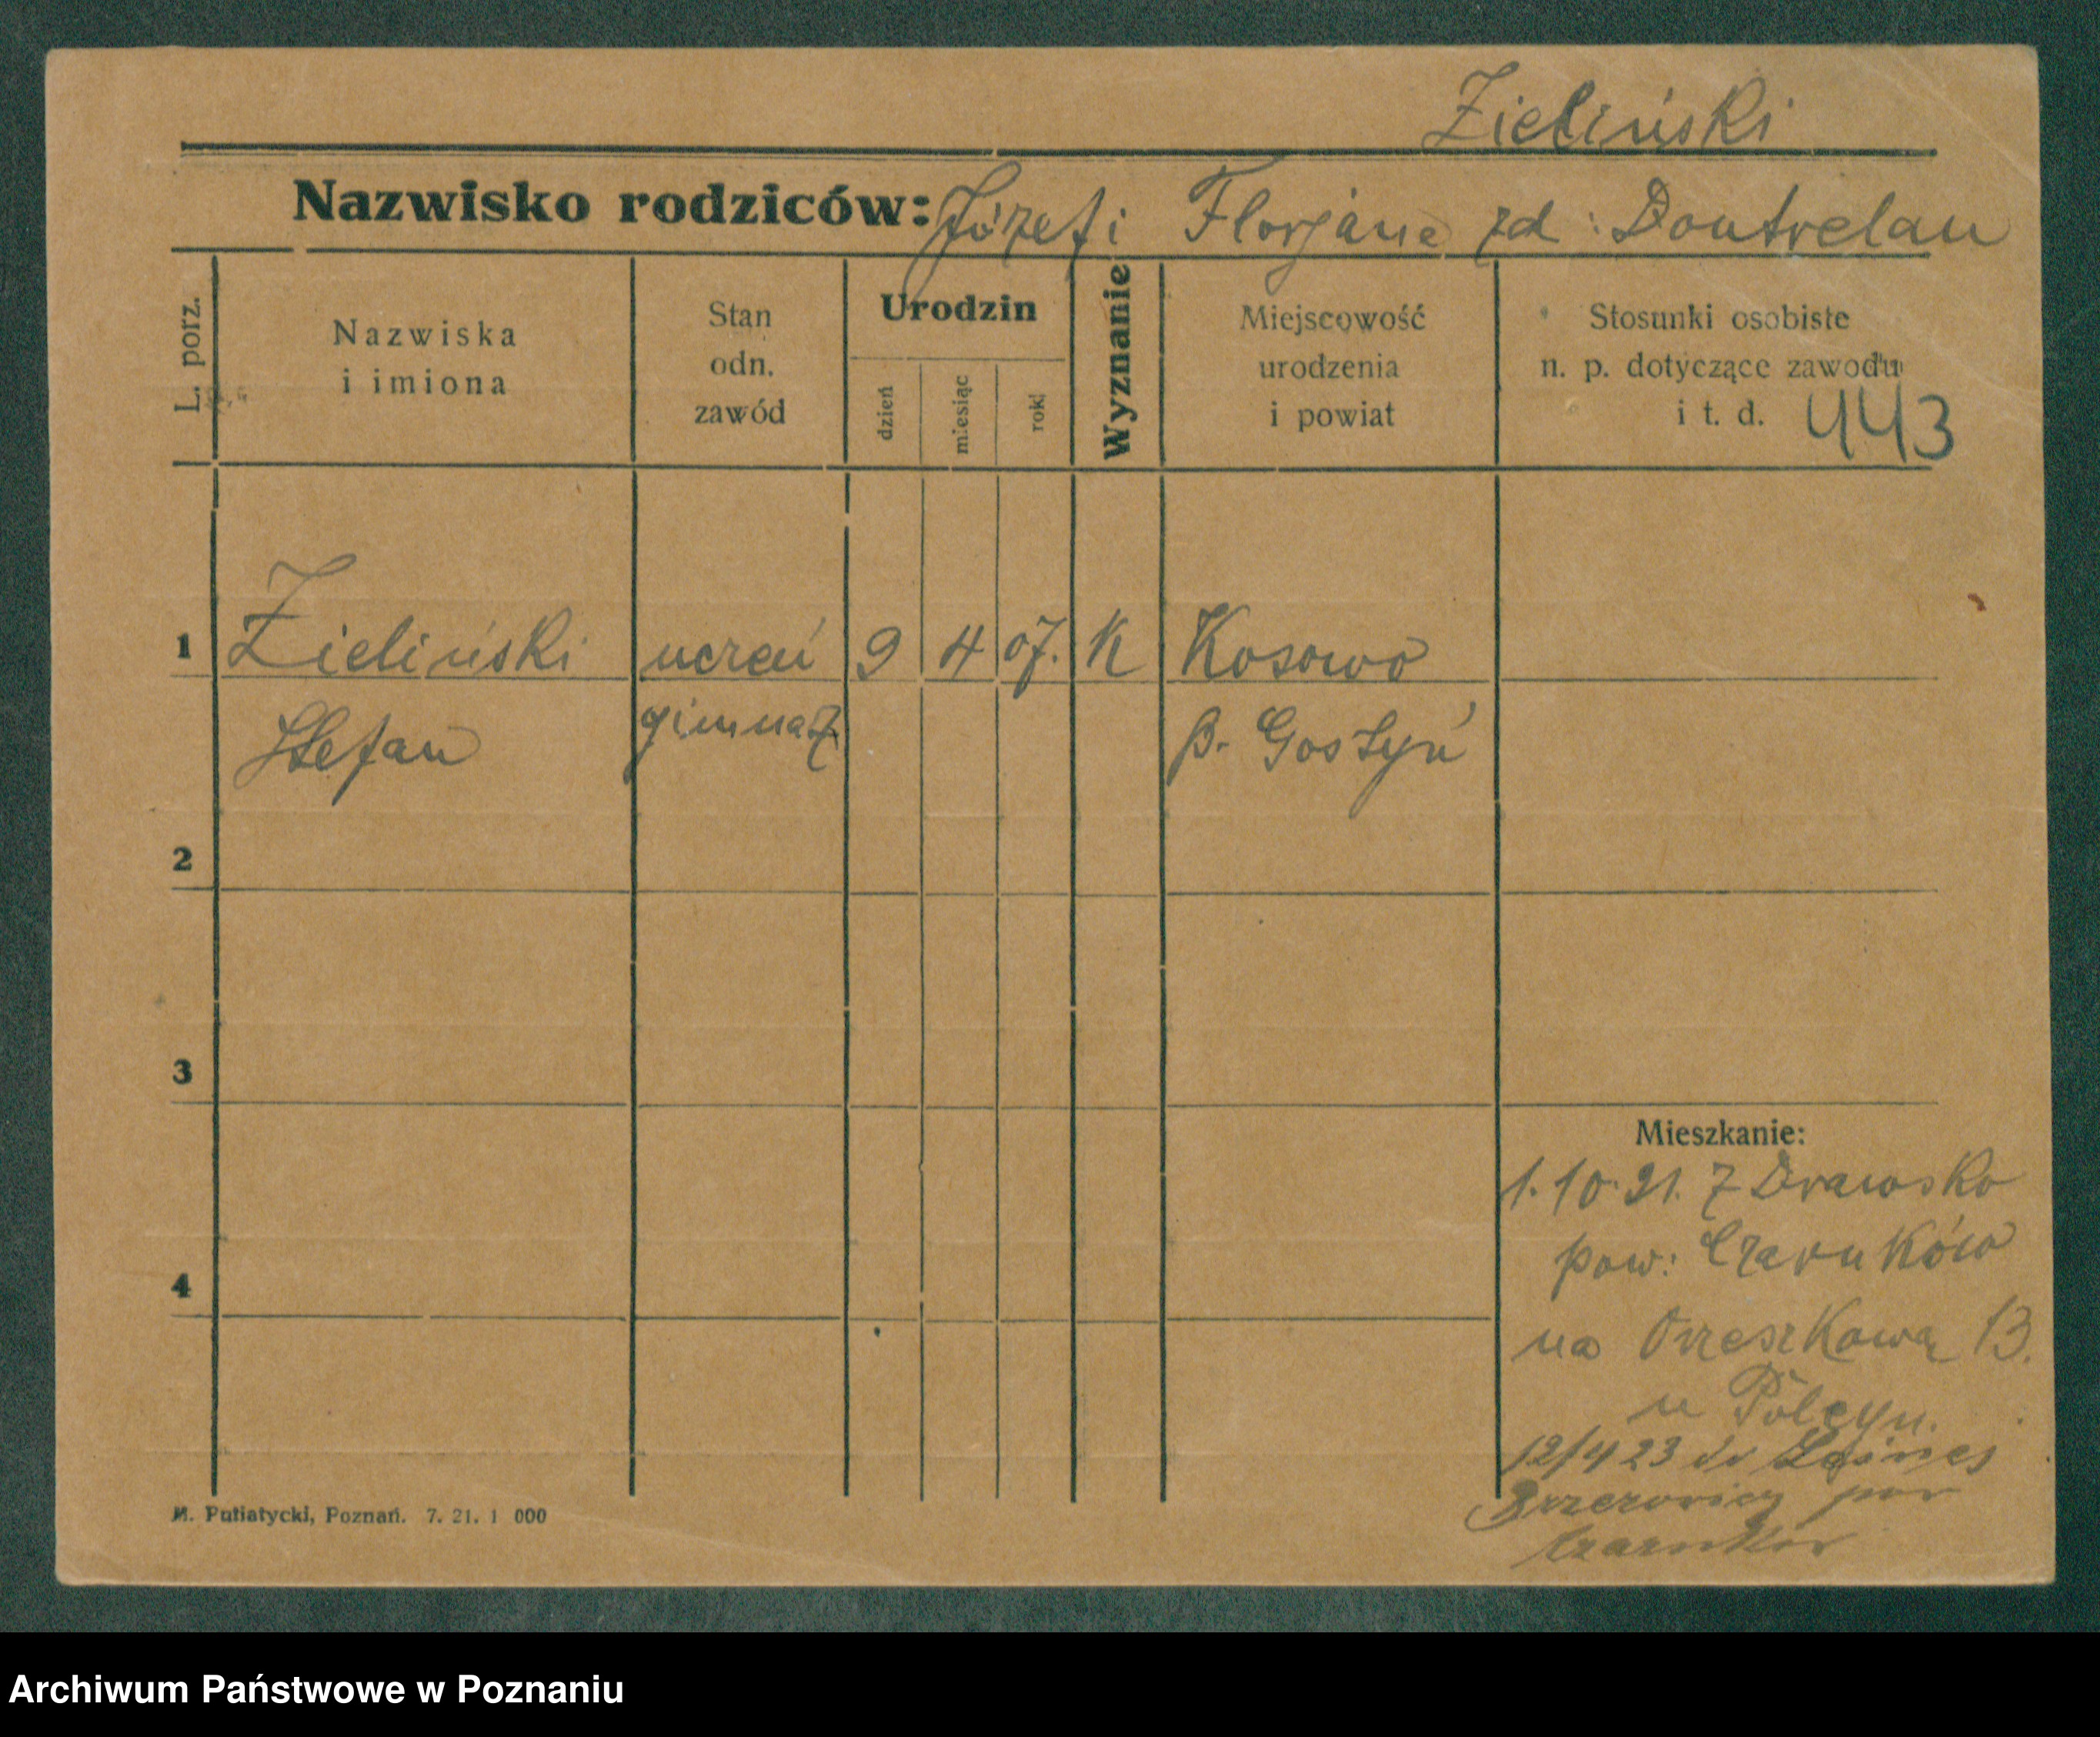 Zieliński
Nazwisko rodziców: Józef i Florjane zd: Doutrelau
L. porz.
Nazwiska
i imiona
Stan
odn.
zawód
Urodzin
dzień
miesiąc
rok
Wyznanie
Miejscowość
urodzenia
i powiat
Stosunki osobiste
n. p. dotyczące zawodu
i t. d. 443
1 Zieliński uczeń 9 4 07. K Kosowo
Stefan gimnaz p. Gostyń
2
3
Mieszkanie:
1.10.21. z Drawsko
pow: Czarnków
4
na Orzeszkową 13.
u Polcyn.
12/4 23 do
pow
Czarnków
M. Putiatycki, Poznań. 7. 21. 1 000
Archiwum Państwowe w Poznaniu